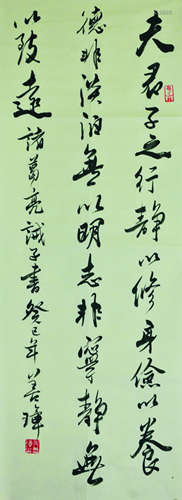 夫君子之行静以修身俭以养
德非淡泊無以明志非寧静無
以致遠諸葛亮诫子書癸巳年善瑋